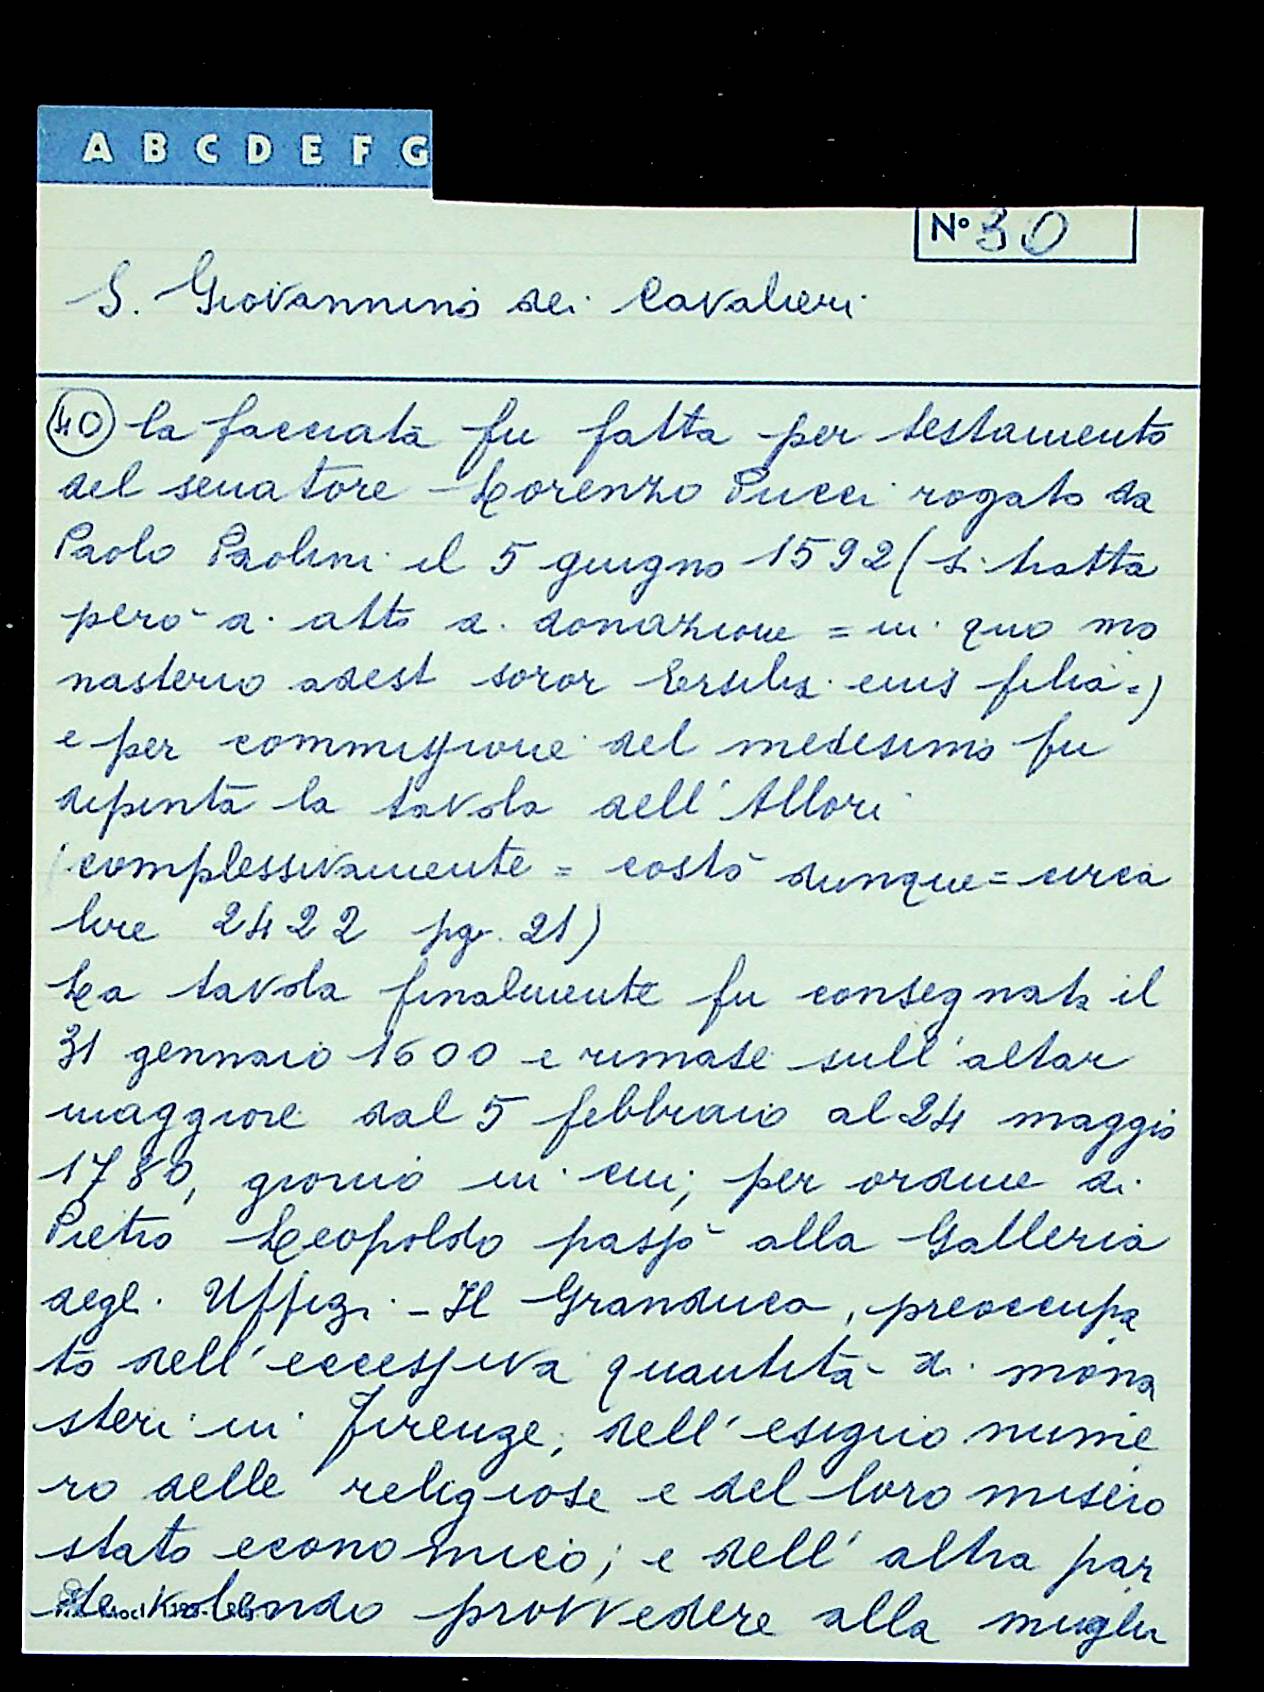 A B C D E F G
N° 30
S. Giovannino dei Cavalieri
40 la facciata fu fatta per testamento
del senatore Lorenzo Pucci rogato da
Paolo Paolini il 5 giugno 1592 (si tratta
però di atto di donazione = in quo mo
nasterio adest soror Ersilia eius filia =)
e per commissione del medesimo fu
dipinta la tavola dell'Allori
(complessivamente = costò dunque = circa
lire 2422 pg. 21)
La tavola finalmente fu consegnata il
31 gennaio 1600 e rimase sull'altar
maggiore dal 5 febbraio al 24 maggio
1780, giorno in cui, per ordine di
Pietro Leopoldo passò alla Galleria
degli Uffizi - Il Granduca, preoccupa
to dell'eccessiva quantità di mona
steri in Firenze, dell'esiguo nume
ro delle religiose e del loro misero
stato economico; e dell'altra par
te volendo provvedere alla miglio